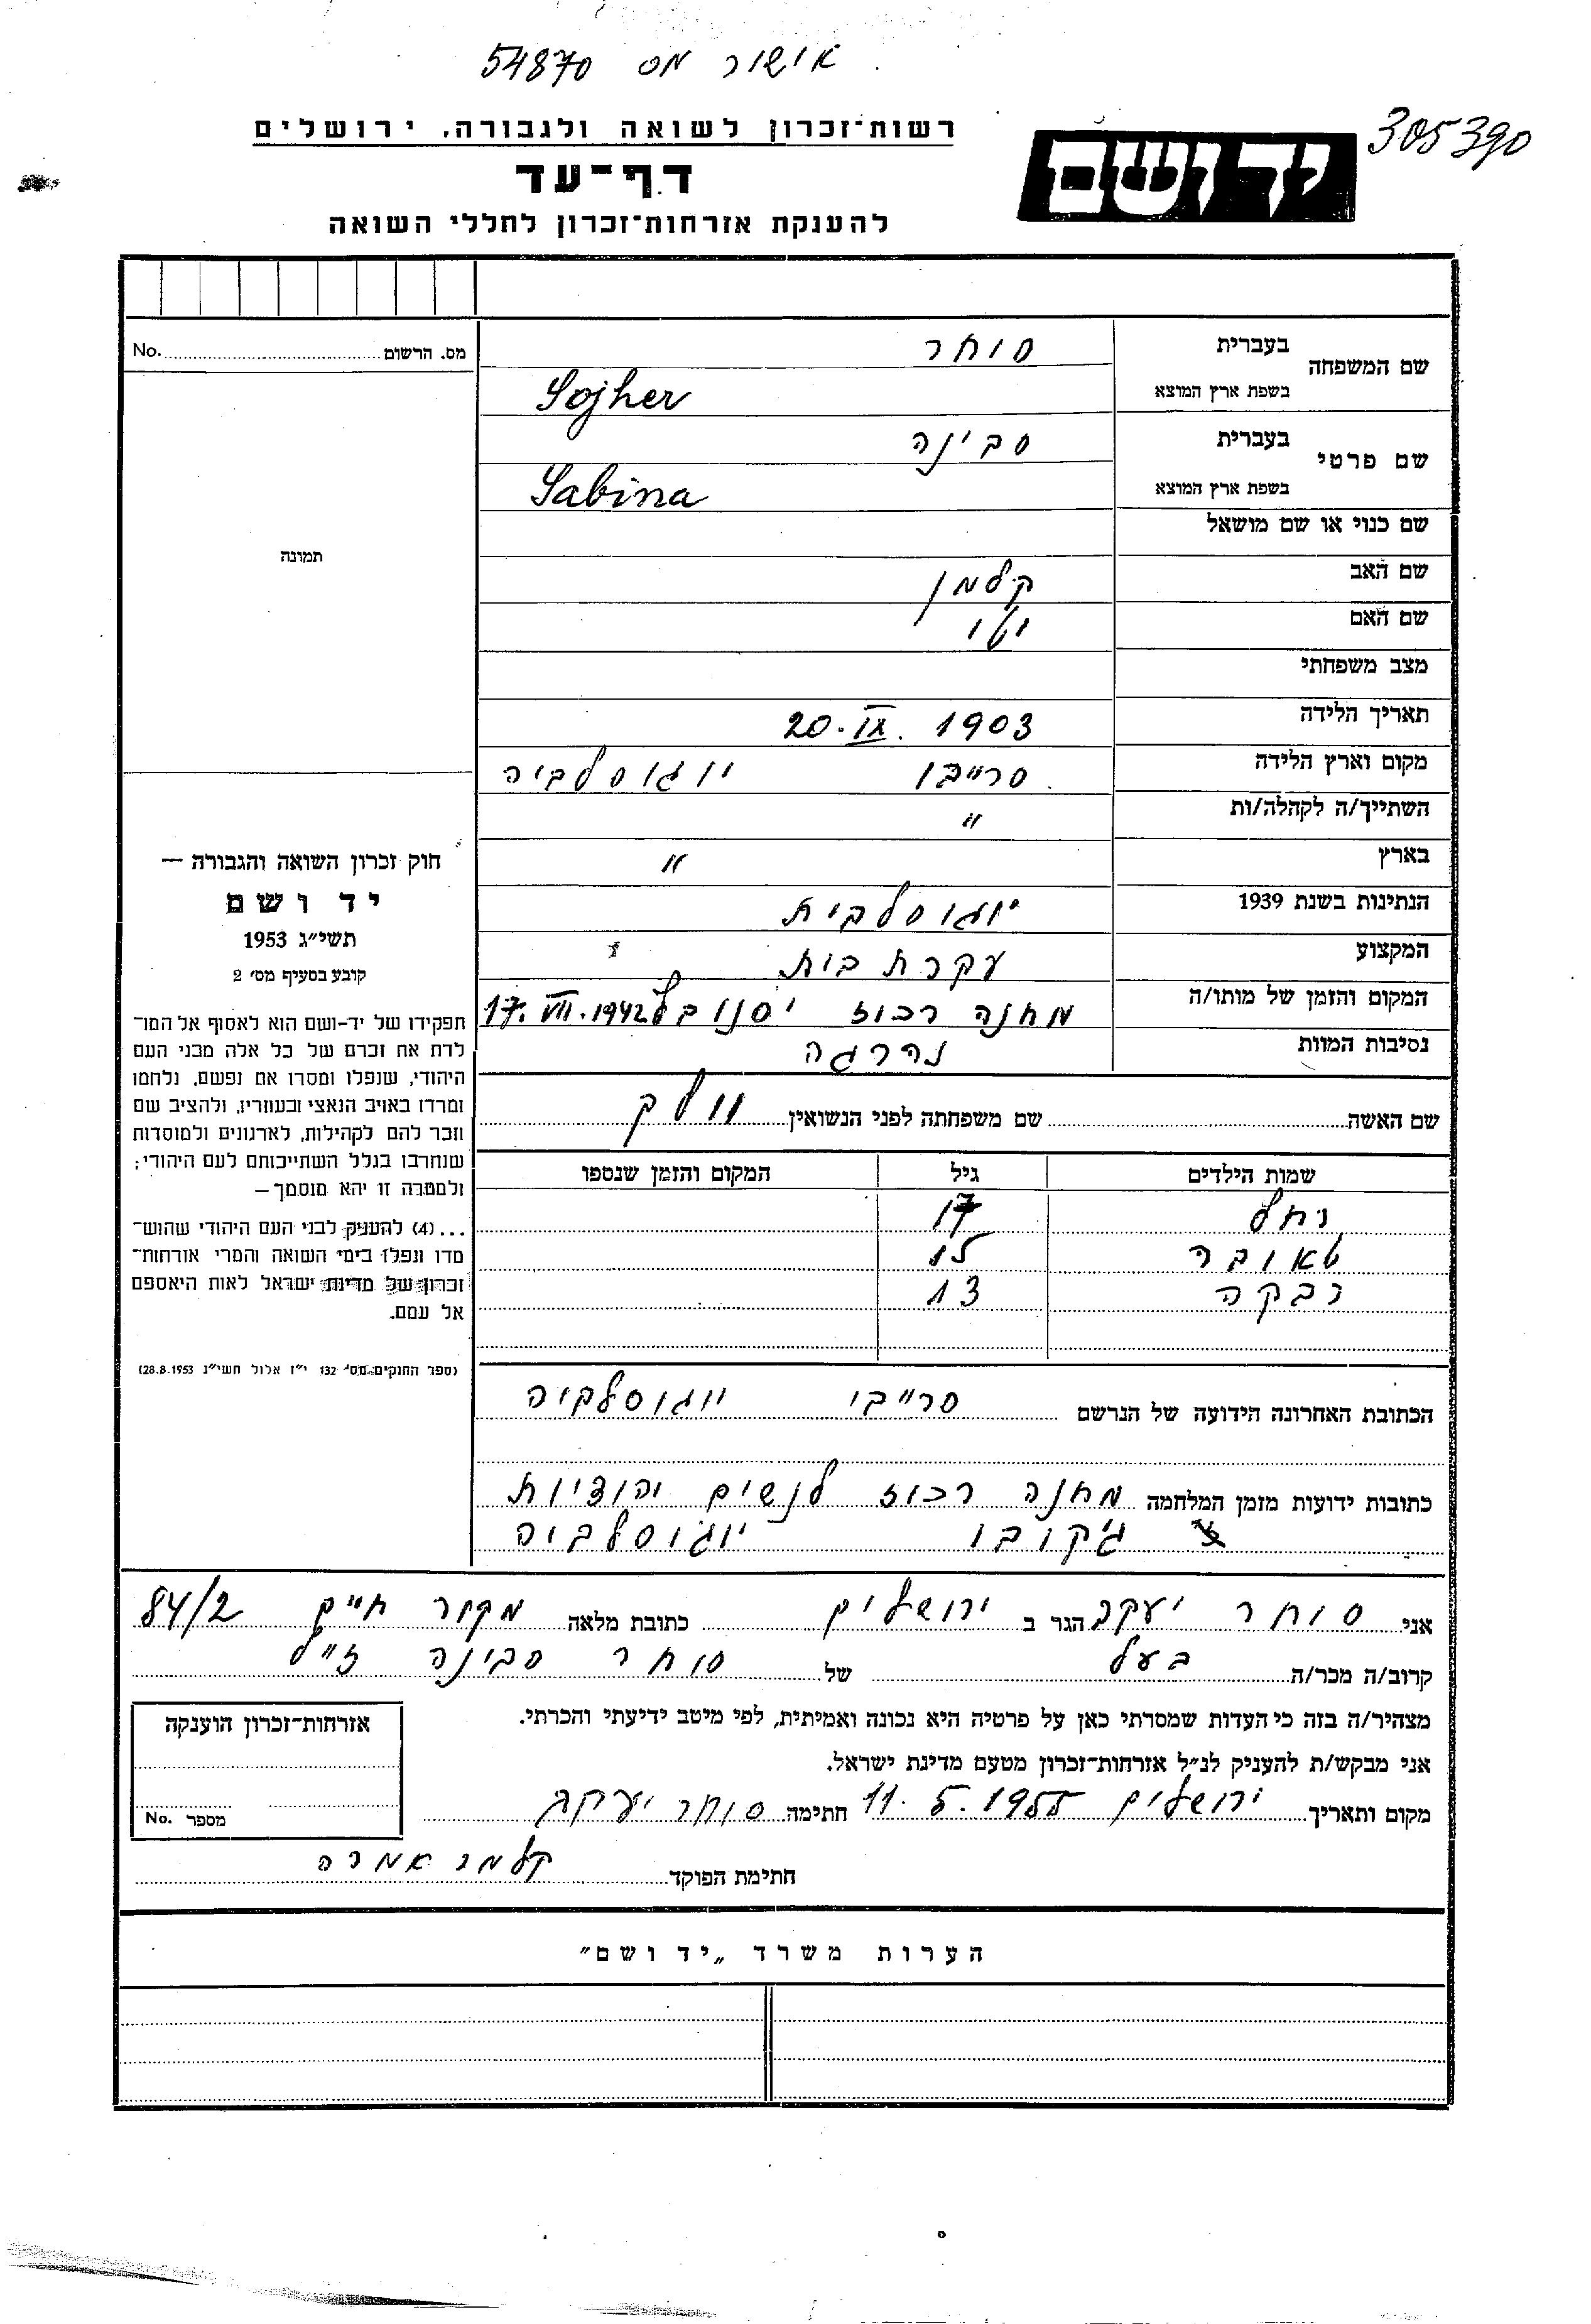 אישור מס 54870
305390
רשות-זכרון לשואה ולגבורה, ירושלים
יד ושם
דף-עד
להענקת אזרחות-זכרון לחללי השואה
שם המשפחה בעברית סוחר
בשפת ארץ המוצא Sojher
שם פרטי בעברית סבינה
בשפת ארץ המוצא Sabina
שם כנוי או שם מושאל
שם האב קלמן
שם האם
מצב משפחתי
תאריך הלידה 20. IX. 1903
מקום וארץ הלידה סרייבו יוגוסלביה
השתייך/ה לקהלה/ות "
בארץ "
הנתינות בשנת 1939 יוגוסלבית
המקצוע עקרת בית
המקום והזמן של מותו/ה מחנה רכוז יסנובץ 17. VII. 1942
נסיבות המוות נהרגה
שם האשה שם משפחתה לפני הנשואין
שמות הילדים גיל המקום והזמן שנספו
רחל 17
טאובה 15
רבקה 13
הכתובת האחרונה הידועה של הנרשם סרייבו יוגוסלביה
כתובות ידועות מזמן המלחמה מחנה רכוז לנשים יהודיות
יוגוסלביה
מס. הרשום No.
תמונה
חוק זכרון השואה והגבורה —
יד ושם
תשי"ג 1953
קובע בסעיף מס' 2
תפקידו של יד-ושם הוא לאסוף אל המו-
לדת את זכרם של כל אלה מבני העם
היהודי, שנפלו ומסרו את נפשם, נלחמו
ומרדו באויב הנאצי ובעוזריו, ולהציב שם
וזכר להם לקהילות, לארגונים ולמוסדות
שנחרבו בגלל השתייכותם לעם היהודי;
ולמטרה זו יהא מוסמך—
...(4) להעניק לבני העם היהודי שהוש-
מדו ונפלו בימי השואה והמרי אזרחות-
זכרון של מדינת ישראל לאות היאספם
אל עמם.
(ספר החוקים מס' 132 י"ז אלול תשי"ג 28.8.1953)
אני סוחר יעקב הגר ב ירושלים כתובת מלאה מקור חיים 84/2
קרוב/ה מכר/ה בעל של סוחר סבינה ז"ל
מצהיר/ה בזה כי העדות שמסרתי כאן על פרטיה היא נכונה ואמיתית, לפי מיטב ידיעתי והכרתי.
אני מבקש/ת להעניק לנ"ל אזרחות-זכרון מטעם מדינת ישראל.
מקום ותאריך ירושלים 11. 5. 1955 חתימה סוחר יעקב
חתימת הפוקד
אזרחות-זכרון הוענקה
מספר No.
הערות משרד „יד ושם"